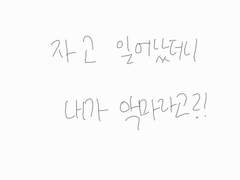 자고 일어났더니
내가 악마라고?!